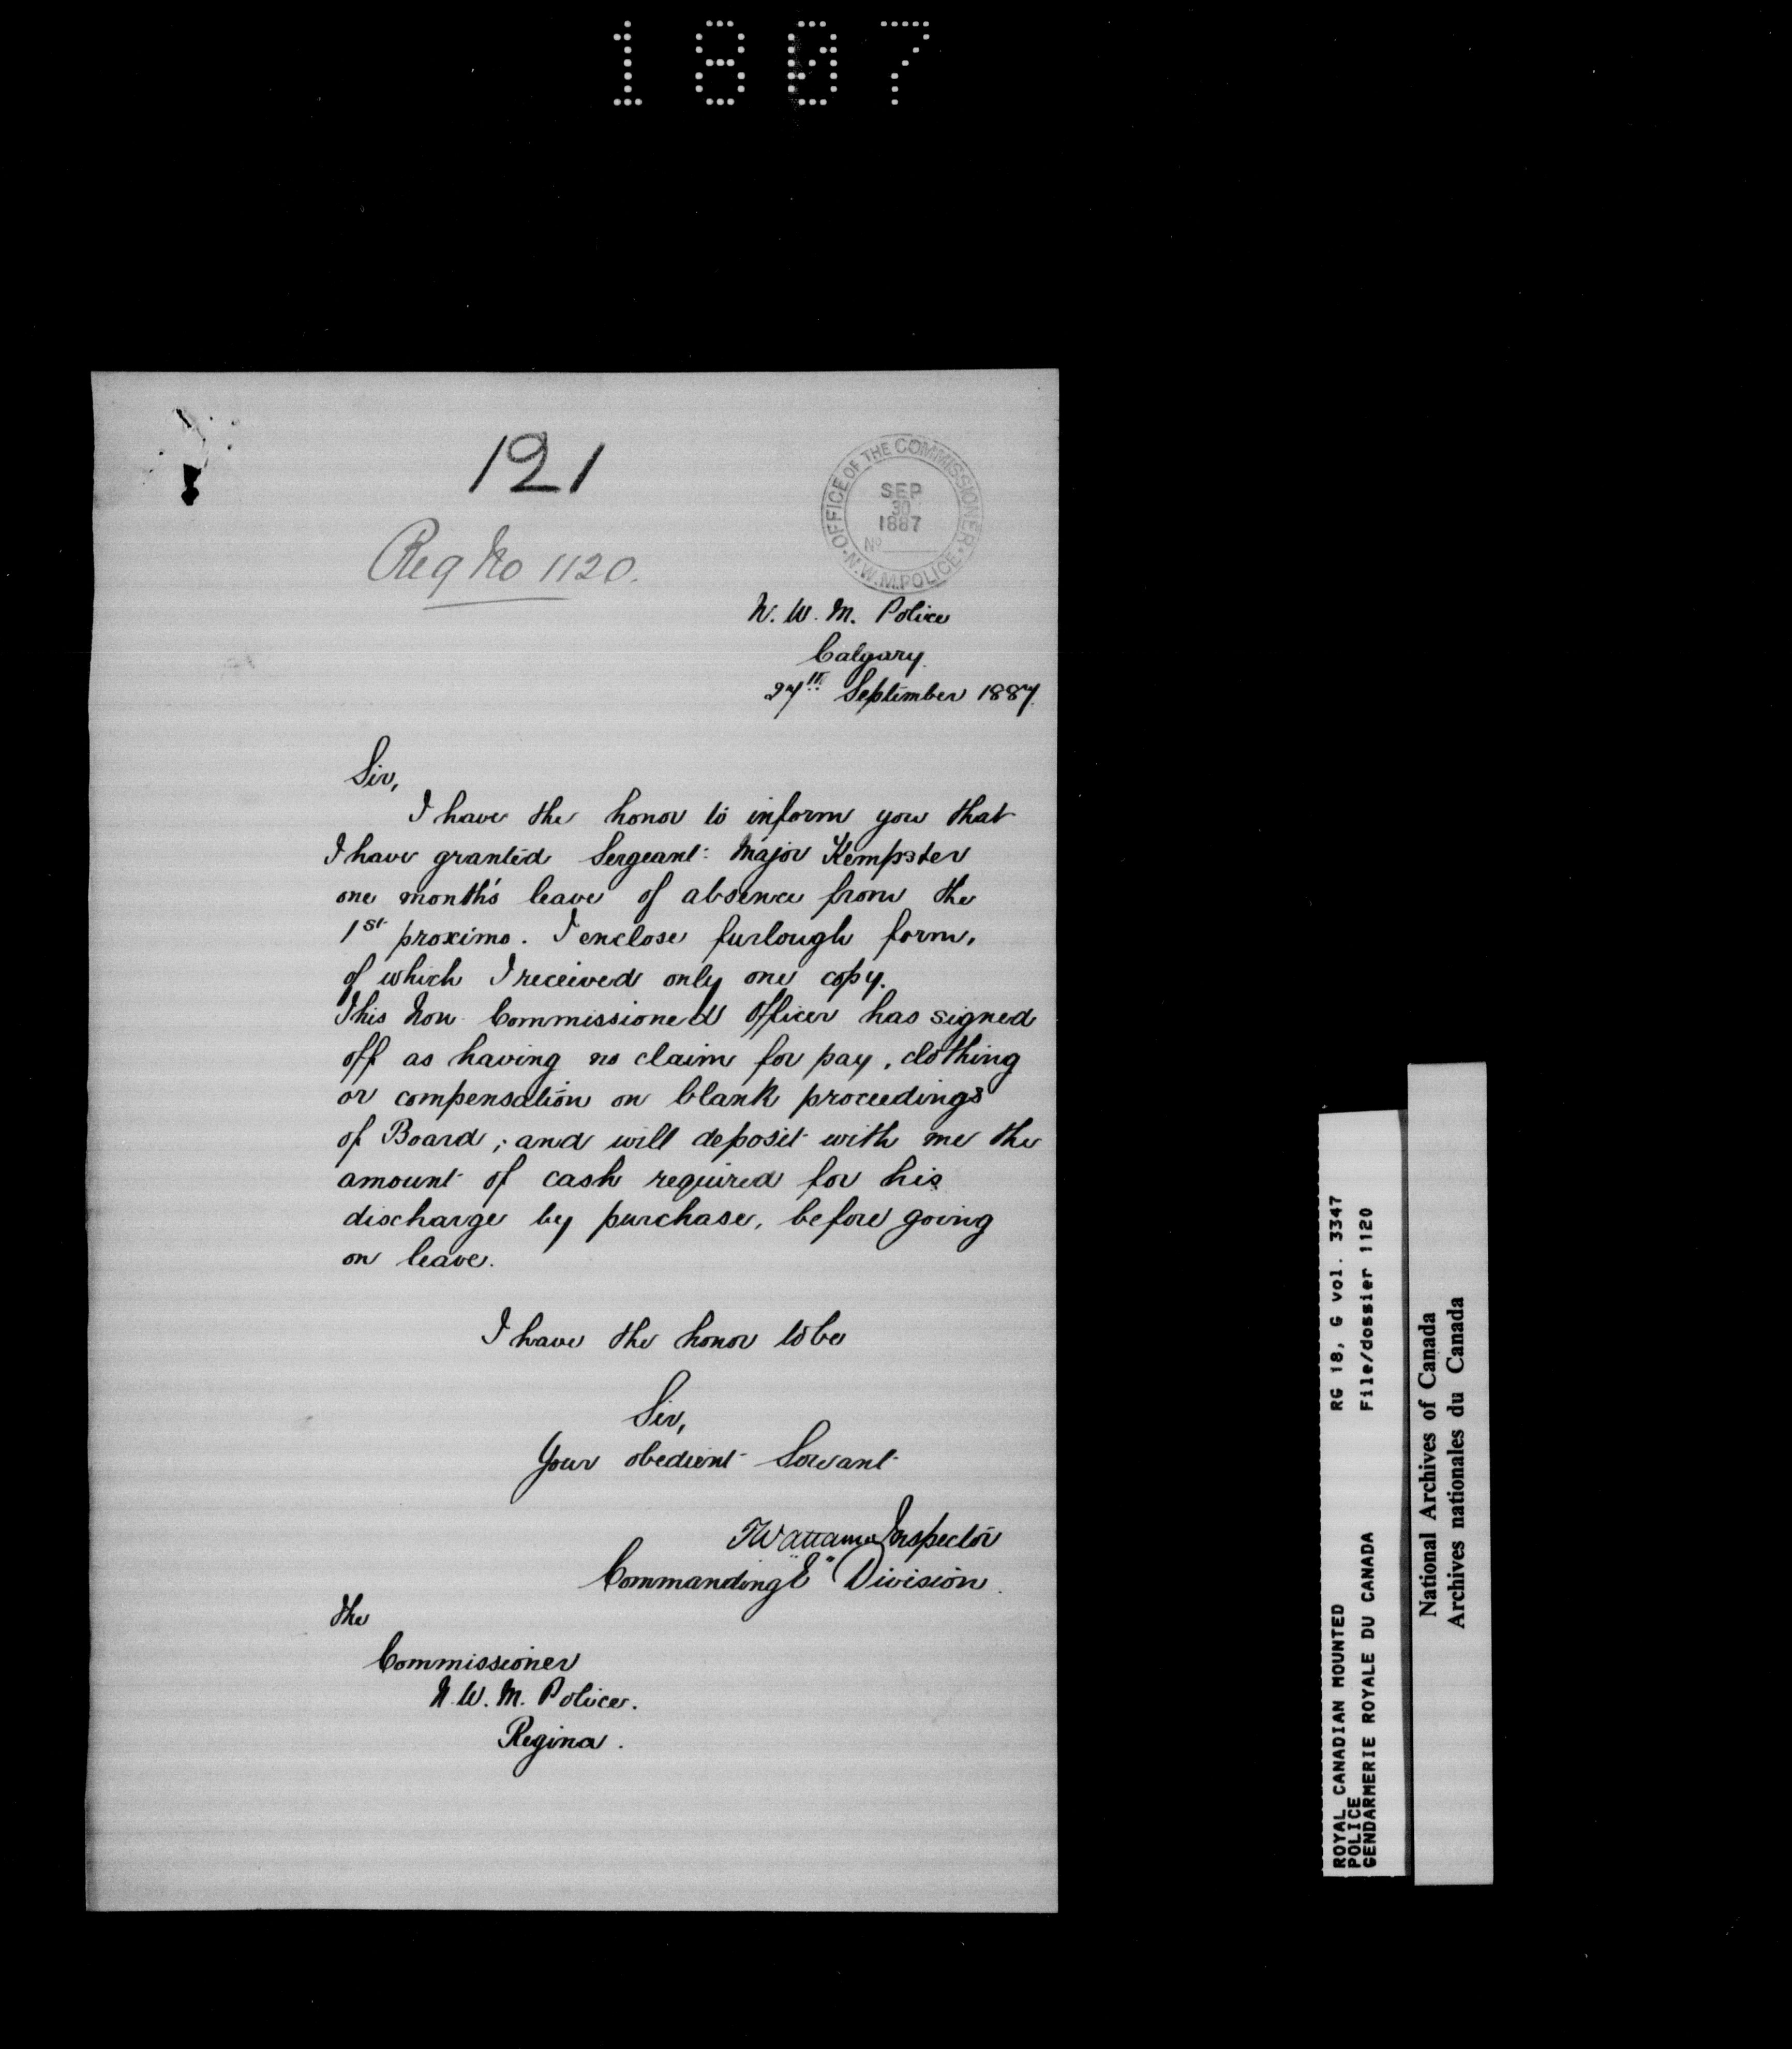 1807
121
OFFICE OF THE COMMISSIONER
SEP
30
1887
No
N.W.M. POLICE
Reg No 1120.
N. W. M. Police
Calgary.
27th September 1887.
Sir,
I have the honor to inform you that
I have granted Sergeant: Major Kempster
one month's leave of absence from the
1st proximo. I enclose furlough form,
of which I received only one copy.
This Non Commissioned Officer has signed
off as having no claim for pay, clothing
or compensation on blank proceedings
of Board; and will deposit with me the
amount of cash required for his
discharge by purchase, before going
on leave.
I have the honor to be
Sir,
Your obedient Servant
Inspector
Commanding "E" Division.
The
Commissioner
N. W. M. Police.
Regina.
ROYAL CANADIAN MOUNTED RG 18, G vol. 3347
POLICE
GENDARMERIE ROYALE DU CANADA File/dossier 1120
National Archives of Canada
Archives nationales du Canada